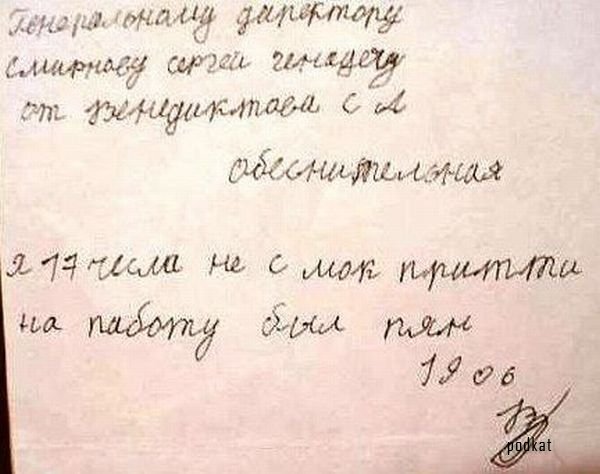 Генеральному директору
Смирнову сергей генадечу
от Венедиктова С А
обеснительная
я 17 чесла не с мок притти
на работу был пян
19 06
podkat